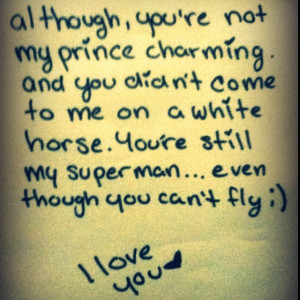 although, you're not
my prince charming.
and you didn't come
to me on a white
horse. You're still
my superman... even
though you can't fly ;)
I love
you